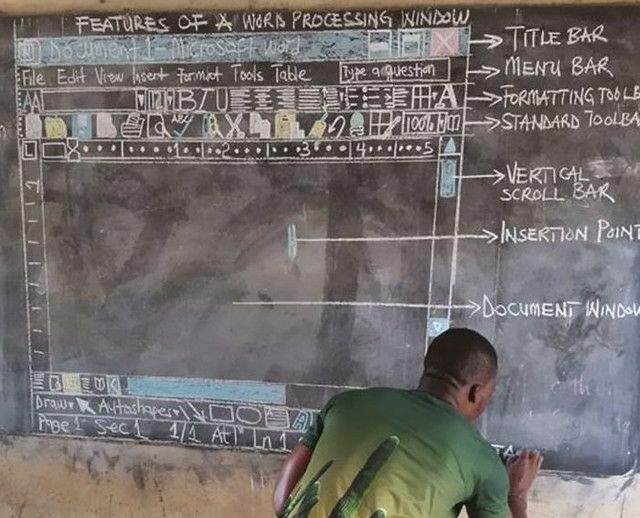 FEATURES OF A WORD PROCESSING WINDOW
Document 1 - Microsoft word
TITLE BAR
File Edit View Insert Format Tools Table
Type a question
MENU BAR
AA
12
B I U
A
FORMATTING TOOLB
ABC
100%
STANDARD TOOLBA
L
1 2 3 4 5
VERTICAL
SCROLL BAR
INSERTION POINT
DOCUMENT WINDOW
Draw Autoshapes
A
Page 1 Sec 1 1/1 At 1" Ln 1